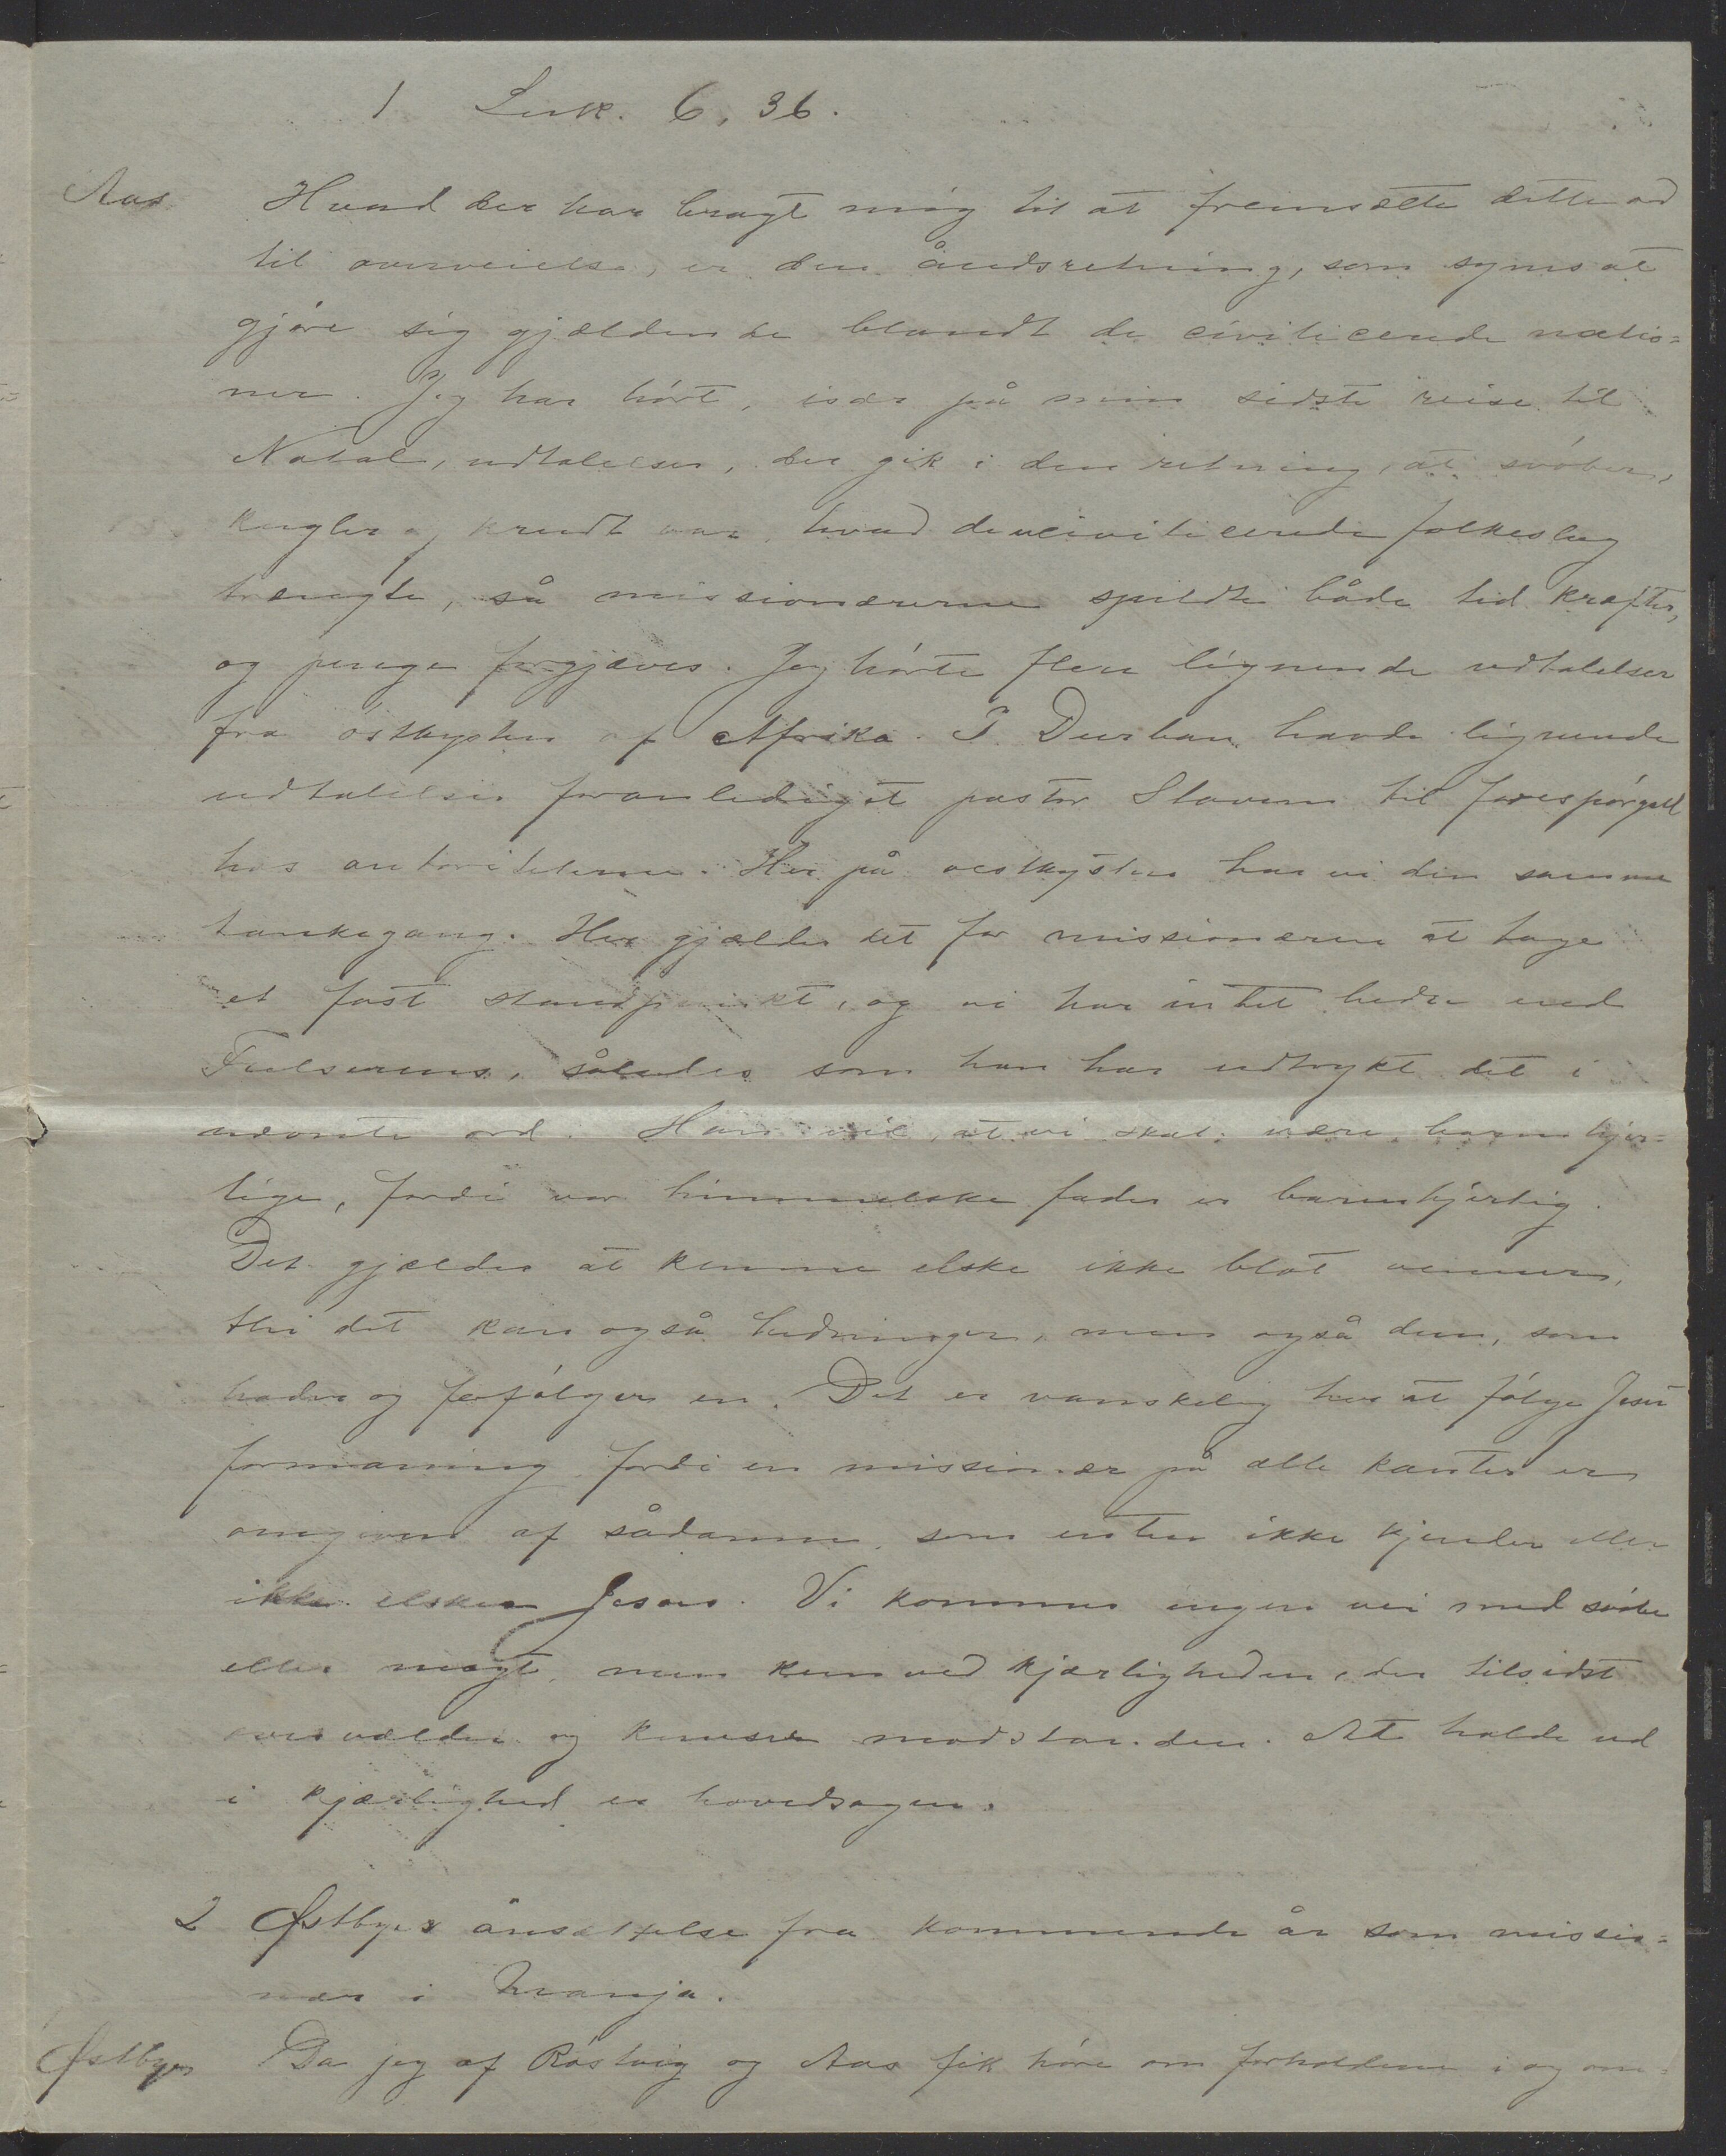 1 Luk. 6, 36.
Aas Hvad der har bragt mig til at fremsætte dette ord
til overveielse, er den åndsretning, som synes at
gjøre sig gjældende blandt de civilicerede natio=
ner. Jeg har hørt, især på min sidste reise til
Natal, udtalelser, der gik i den retning, at svøber,
kugler og krudt var, hvad de uciviliserede folkeslag
trængte, så missionærerne spildte både tid kræfter,
og penge forgjæves. Jeg hørte flere lignende udtalelser
fra østkysten af Afrika. I Durban havde lignende
udtalelser foranlediget pastor Stavem til forespørgsel
hos autoriteterne. Her på vestkysten har vi den samme
tankegang. Her gjælder det for missionæren at tage
et fast standpunkt, og vi har intet bedre end
Frelserens, således som han har udtrykt det i
nævnte ord. Han vil, at vi skal være barmhjer=
tige, fordi vor himmelske fader er barmhjertig.
Det gjælder at kunne elske ikke blot venner,
thi det kan også hedninger, men også dem, som
hader og forfølger en. Det er vanskelig her at følge Jesu
formaning, fordi en missionær på alle kanter er
omgiven af sådanne, som enten ikke kjender eller
ikke elsker Jesus. Vi kommer ingen vei med svøbe
eller magt, men kun ved kjærligheden, der tilsidst
overvælder og knuser modstanden. At holde ud
i kjærlighed er hovedsagen.
2 Østbyes ansættelse fra kommende år som missio=
nær i Manja.
Østbye Da jeg af Røstvig og Aas fik høre om forholdene i og om=